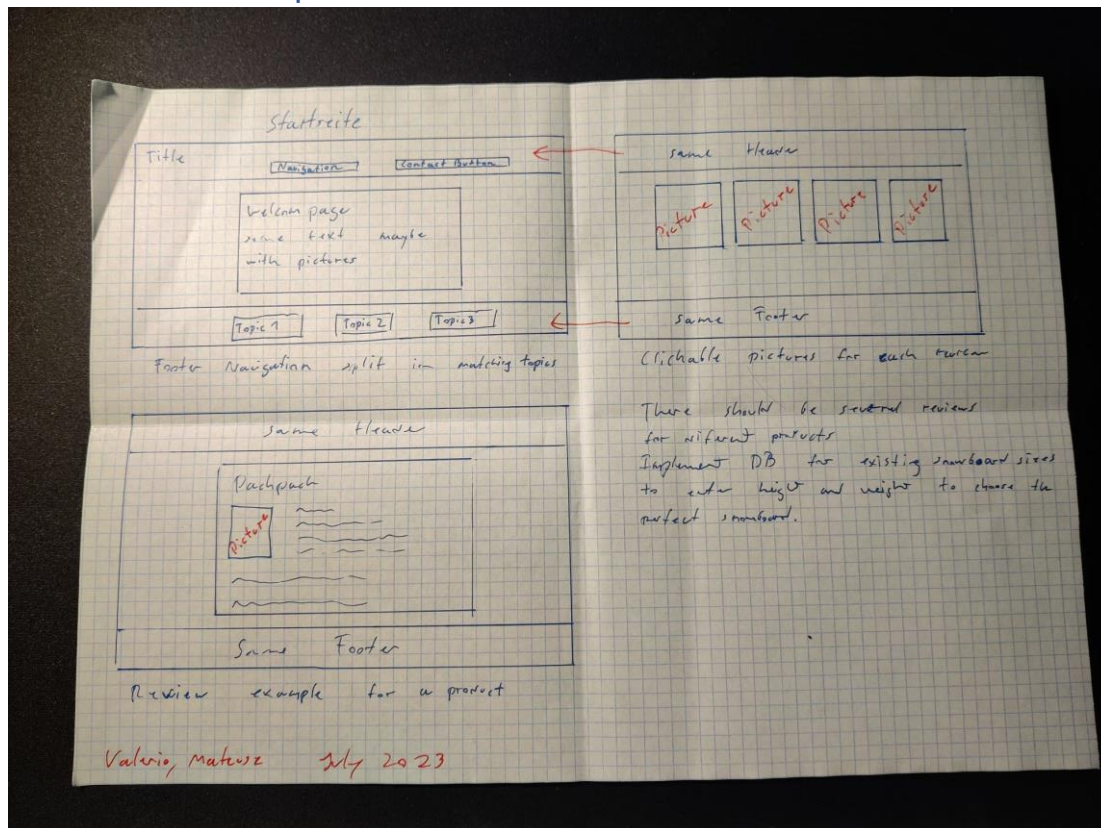 Startseite
Title
Navigation
Contact Button
Welcom page
some text maybe
with pictures
Topic 1
Topic 2
Topic 3
Footer Navigation split in matching topics
same Header
Picture
Picture
Picture
Picture
same Footer
Clichable pictures for each review
There should be several reviews
for different products
Implement DB for existing snowboard sizes
to enter and weight to choose the
perfect snowboard.
same Header
Pachpach
Picture
Same Footer
Review example for a product
Valerio, Mateusz July 2023